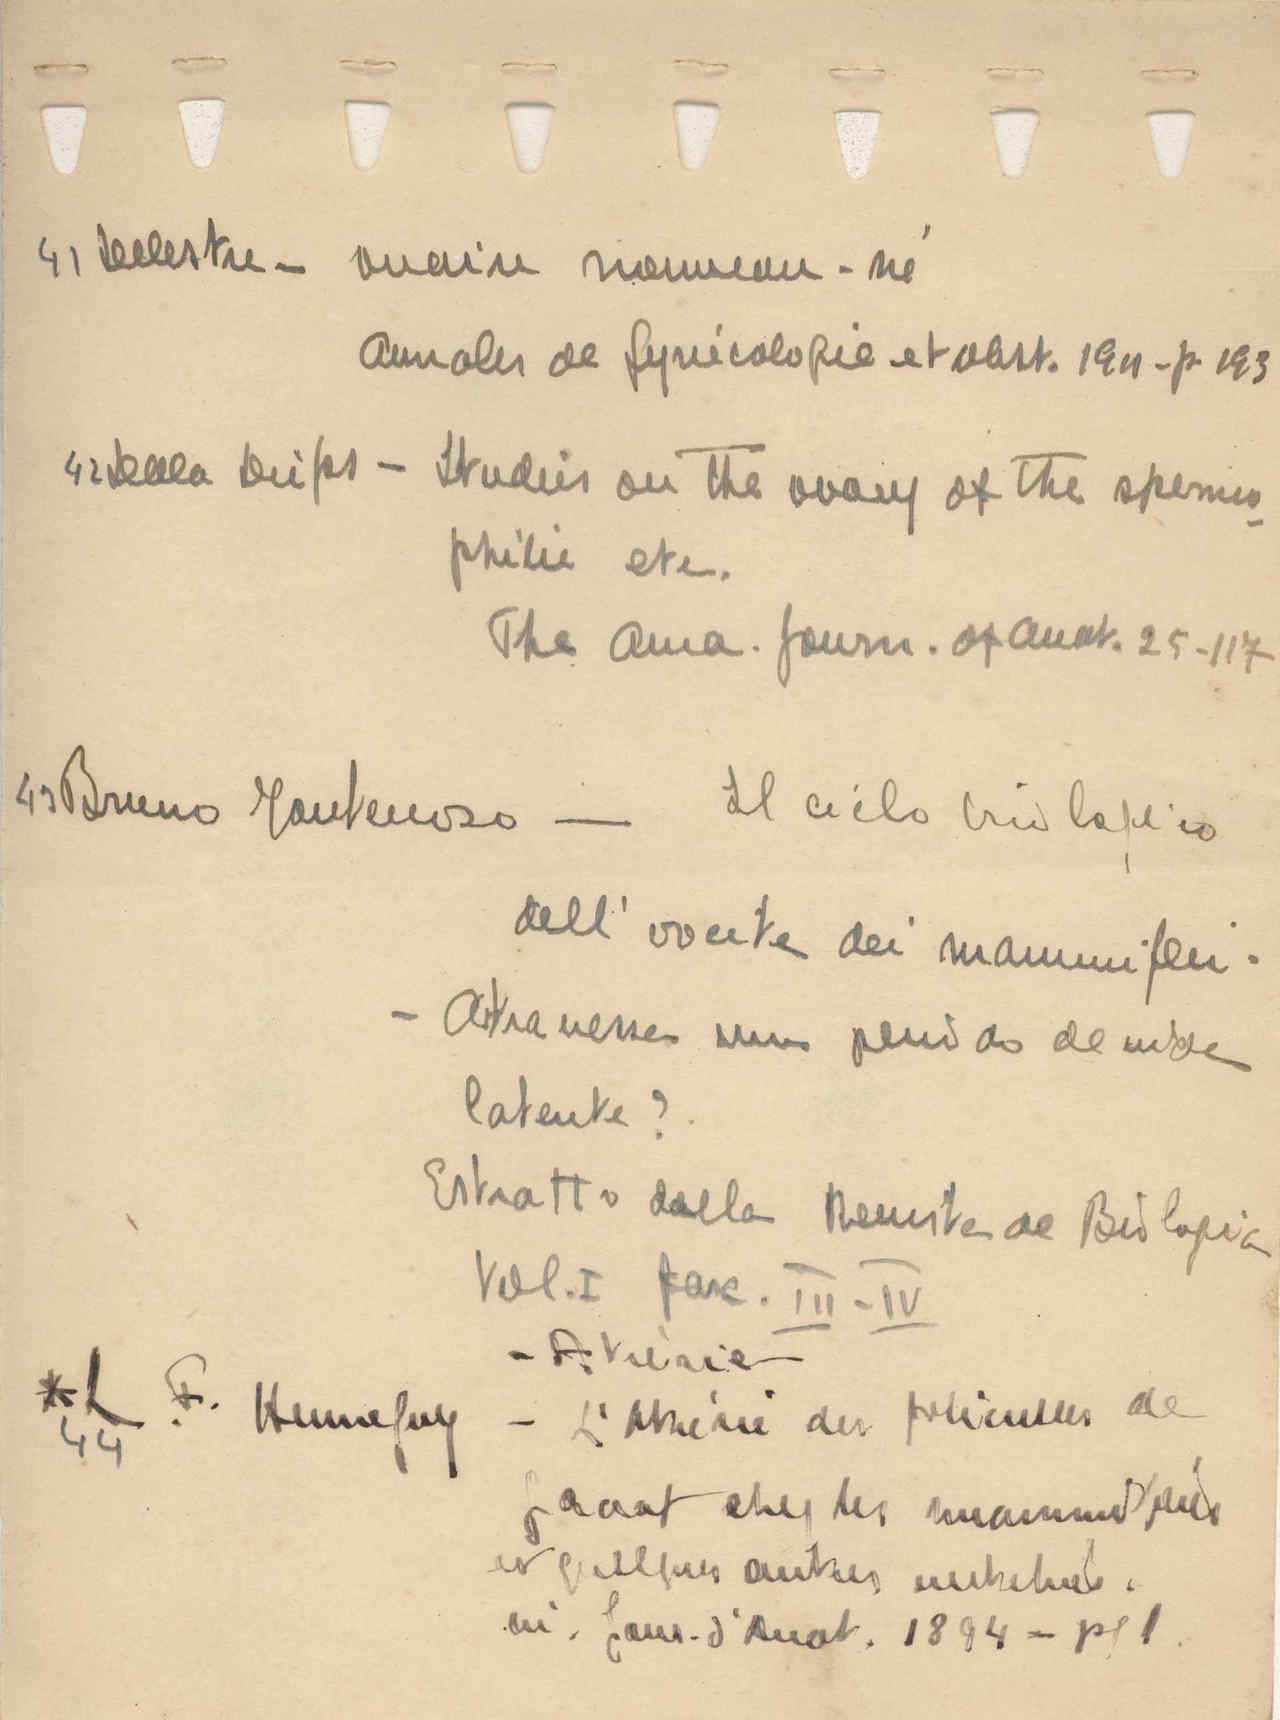 41 Delestre - ovaire nouveau-né
Annales de Gynécologie et obst. 1911 - p. 193
42 Della Drips - Studies on the ovary of the spermo-
philie etc.
The Ama. Journ. of Anat. 25-117
43 Bruno Monterosso — Il ciclo biologico
dell'ovocite dei mammiferi.
- Attraverse un periodo de vida
latente?
Estratto dalla Revista de Biologia
Vol. I fasc. III-IV
- Atrésie -
* L. F. Henneguy - L'Atrésie des follicules de
44
Graaf chez les mammifères
et quelques autres vertebrés.
in. Jour. d'Anat. 1894 - pg 1